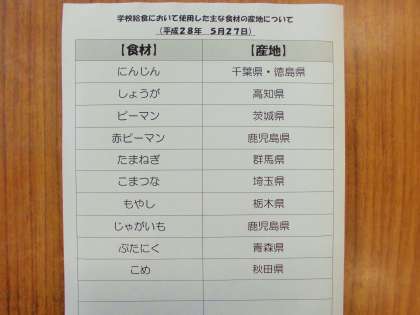 学校給食において使用した主な食材の産地について
（平成28年　5月27日）
【食材】 【産地】
にんじん 千葉県・徳島県
しょうが 高知県
ピーマン 茨城県
赤ピーマン 鹿児島県
たまねぎ 群馬県
こまつな 埼玉県
もやし 栃木県
じゃがいも 鹿児島県
ぶたにく 青森県
こめ 秋田県